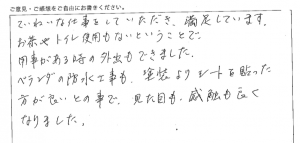 ご意見・ご感想をご自由にお書きください。
ていねいな仕事をしていただき、満足しています。
お茶やトイレ使用もないということで、
用事がある時の外出もできました。
ベランダの防水工事も、塗装よりシートを貼った
方が良いとの事で、見た目も、感触も良く
なりました。